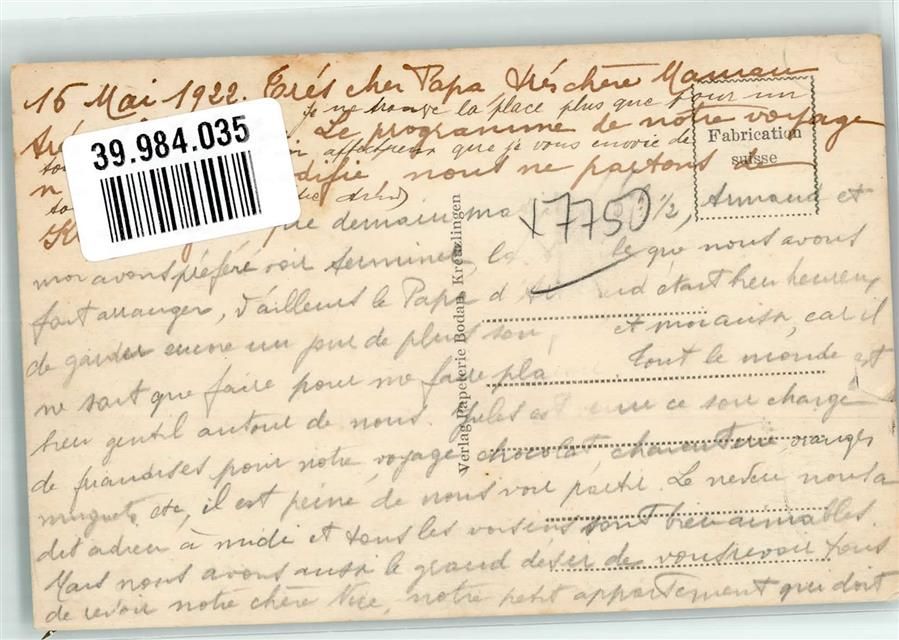 16 Mai 1922. Très cher Papa très chère Maman
je ne trouve la place plus que pour un
Le programme de notre voyage
39.984.035
affectueux que je vous envoie de
difié nous ne partons de
Fabrication
suisse
demain
17750
1/2, Armand et
moi avons préféré voir terminer, le que nous avons
fait arranger, d'ailleurs le Papa d était bien heureux
de garder encore un jour de plus son et moi aussi, car il
ne sait que faire pour me faire pla Tout le monde est
bien gentil autour de nous. Jules est venu ce soir chargé
de friandises pour notre voyage, chocolat, charcuterie, oranges
muguets, etc, il est peiné de nous voir partir. Le neveu nous a
dit adieu à midi et tous les voisins sont bien aimables.
Mais nous avons aussi le grand désir de vous revoir tous
de revoir notre chère Nice, notre petit appartement qui doit
Verlag Papeterie Bodan, Kreuzlingen